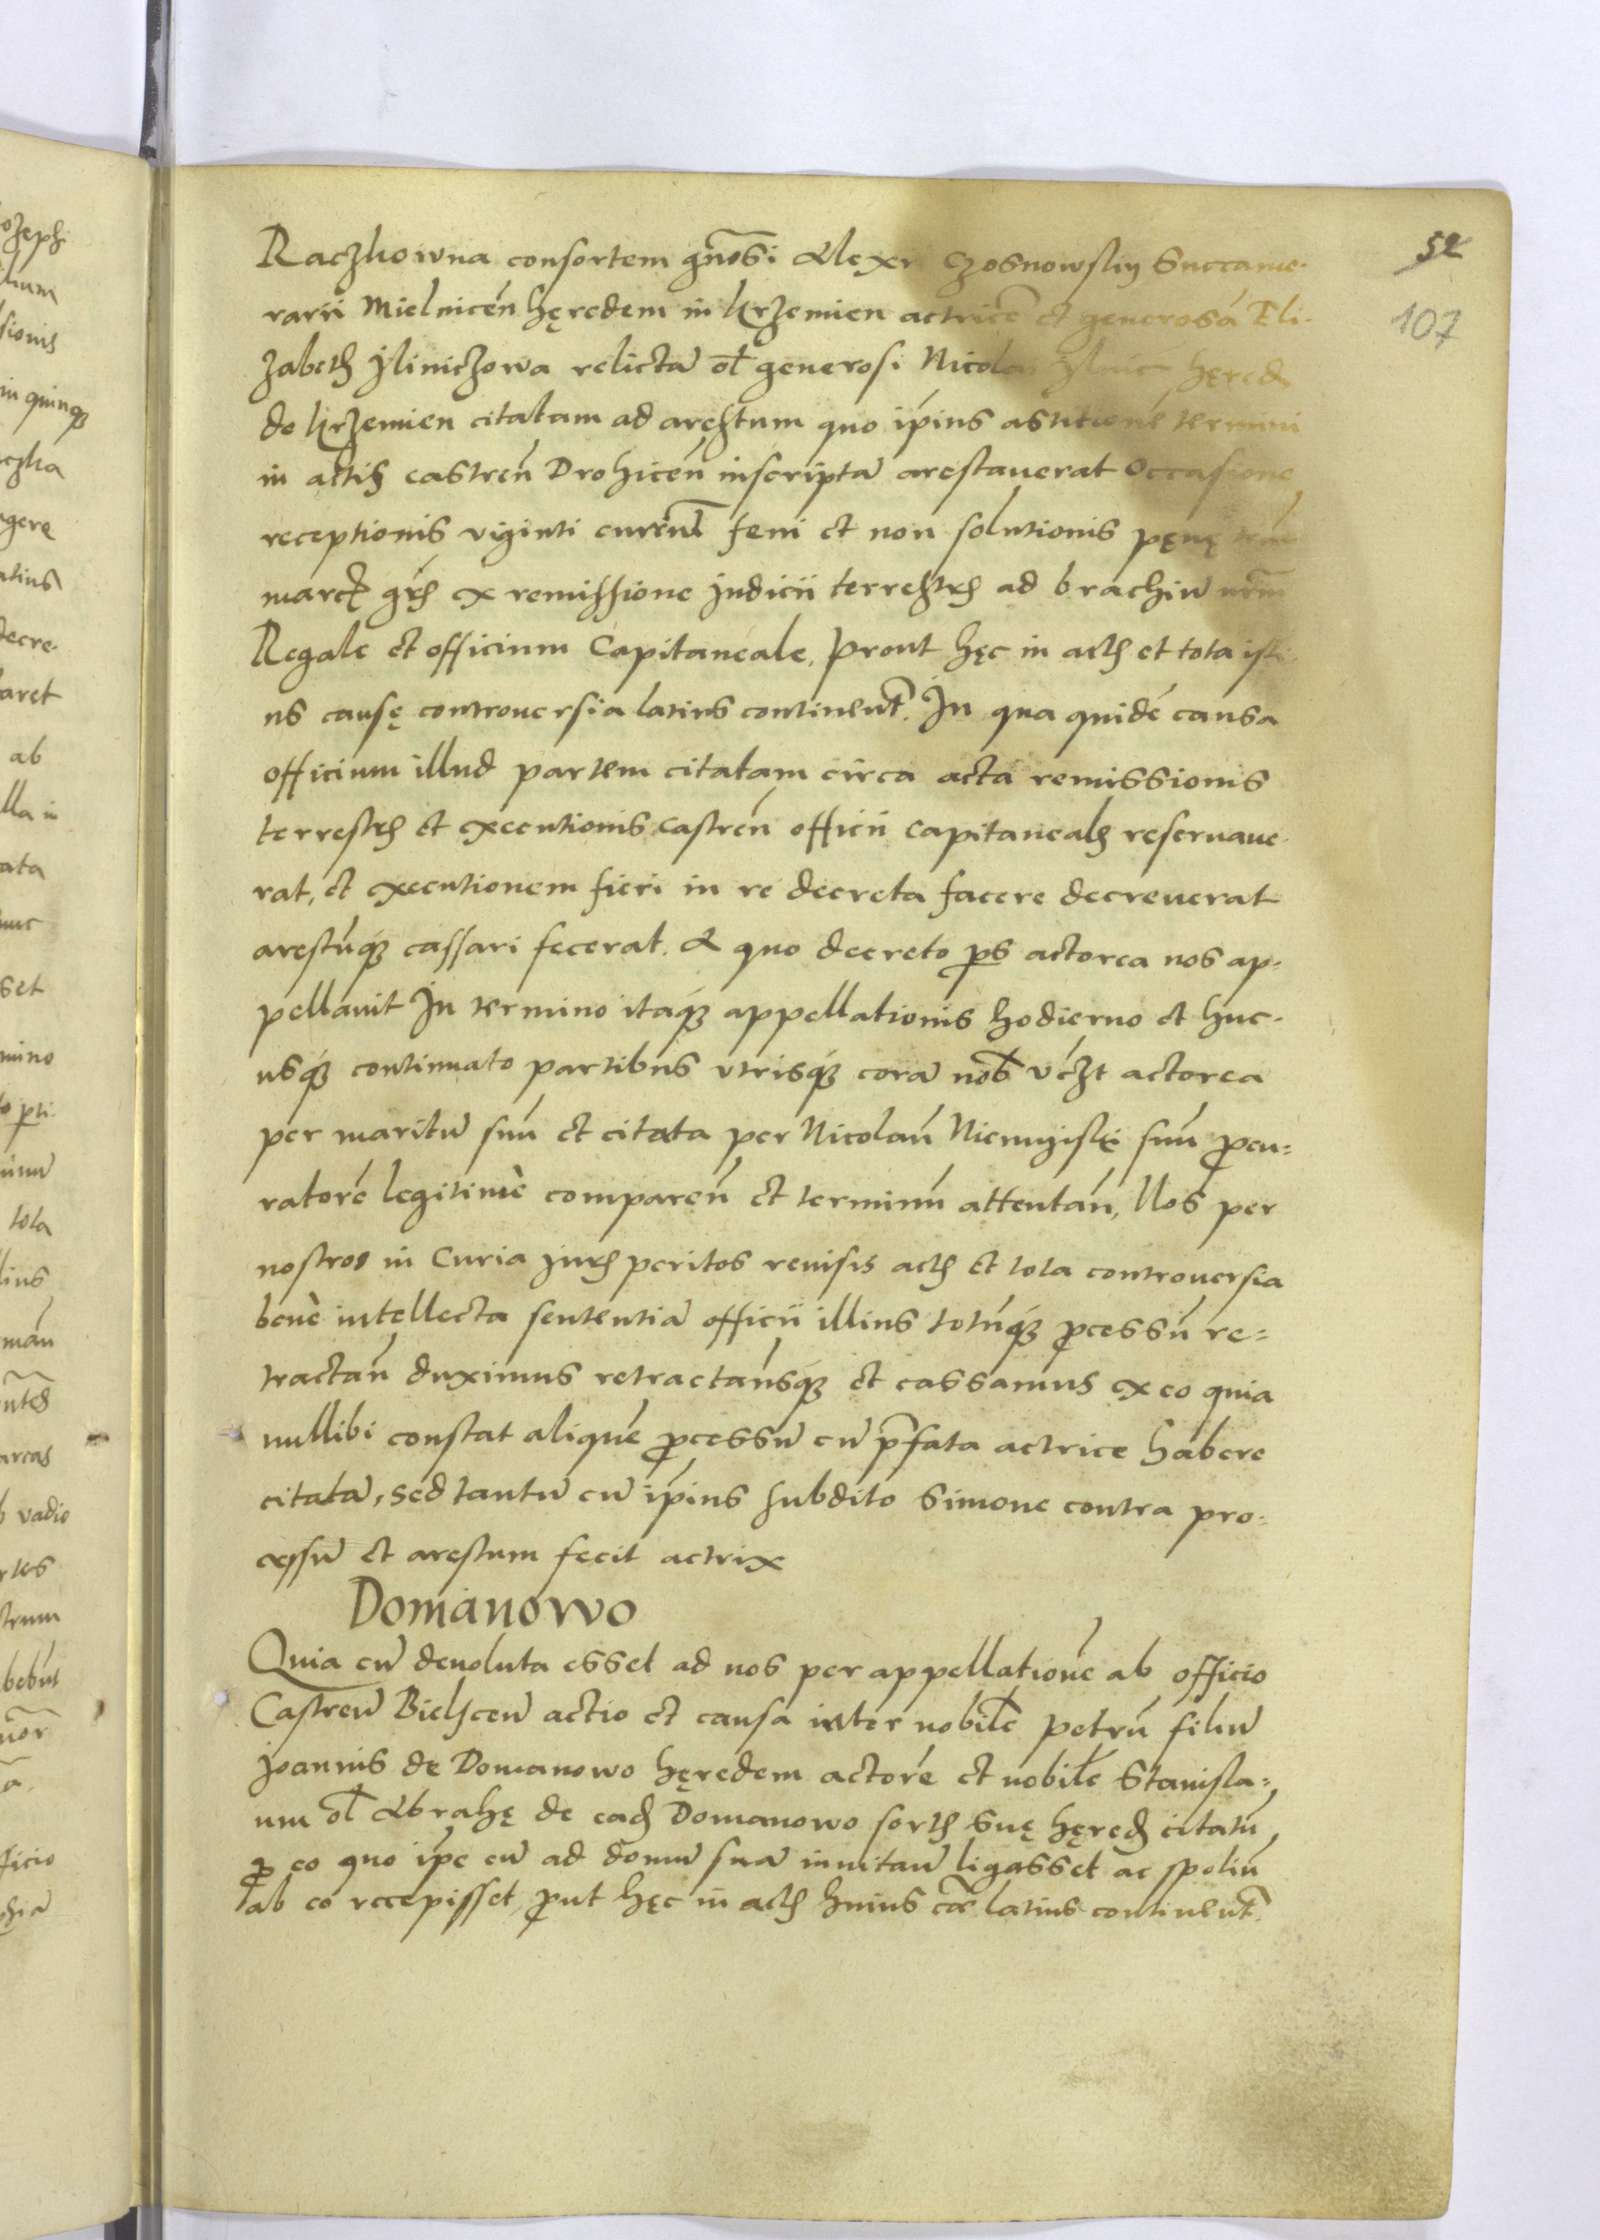 52
107
Raczkowna consortem gnosi Alexr Czosnowsky Succame-
rarii Mielnicen hęredem in Krzemien actricē et generosā Eli-
zabeth Iliniczowa relictā ol generosi Nicolai Ilinic hęredē
de Krzemien citatam ad arestum quo ipius astitionē termini
in actis castren Drohicen inscriptā arestauerat Occasione
receptionis viginti curruū feni et non solutionis pęnę
marc grs ex remissione Iudicii terrestris ad brachiū nrm
Regale et officium Capitaneale, Prout hęc in actis et tota isti-
us causę controuersia latius continent. In qua quidē causa
officium illud partem citatam circa acta remissionis
terrestris et executionis castren officii capitanealis reseruaue-
rat, et executionem fieri in re decreta facere decreuerat
arestūq cassari fecerat. A quo decreto ps actorea nos ap-
pellauit In termino itaq appellationis hodierno et huc-
usq continuato partibus vtrisq corā nob vczt actorea
per maritū suū et citata per Nicolaū suū pcu-
ratorē legitimè comparen et terminū attentan, Nos per
nostros in Curia iuris peritos reuisis actis et tota controuersia
benè intellecta sententiā officii illius totūq pcessū re-
tractan duximus retractamusq et cassamus ex eo quia
nullibi constat aliquē pcessū cū pfata actrice habere
citatā, sed tantū cū ipius subdito Simone contra pro-
cessū et arestum fecit actrix
Domanowo
Quia cū deuoluta esset ad nos per appellationē ab officio
Castren Bielscen actio et causa inter nobilē Petrū filiū
Joannis de Domanowo hęredem actorē et nobilē Stanisla-
um ol Abrahę de eadē Domanowo sortis suę hęredē citatū
p eo quo ipe eū ad domū suā inuitatū ligasset ac spoliū
ab eo recepisset, put hęc in actis huius cae latius continent